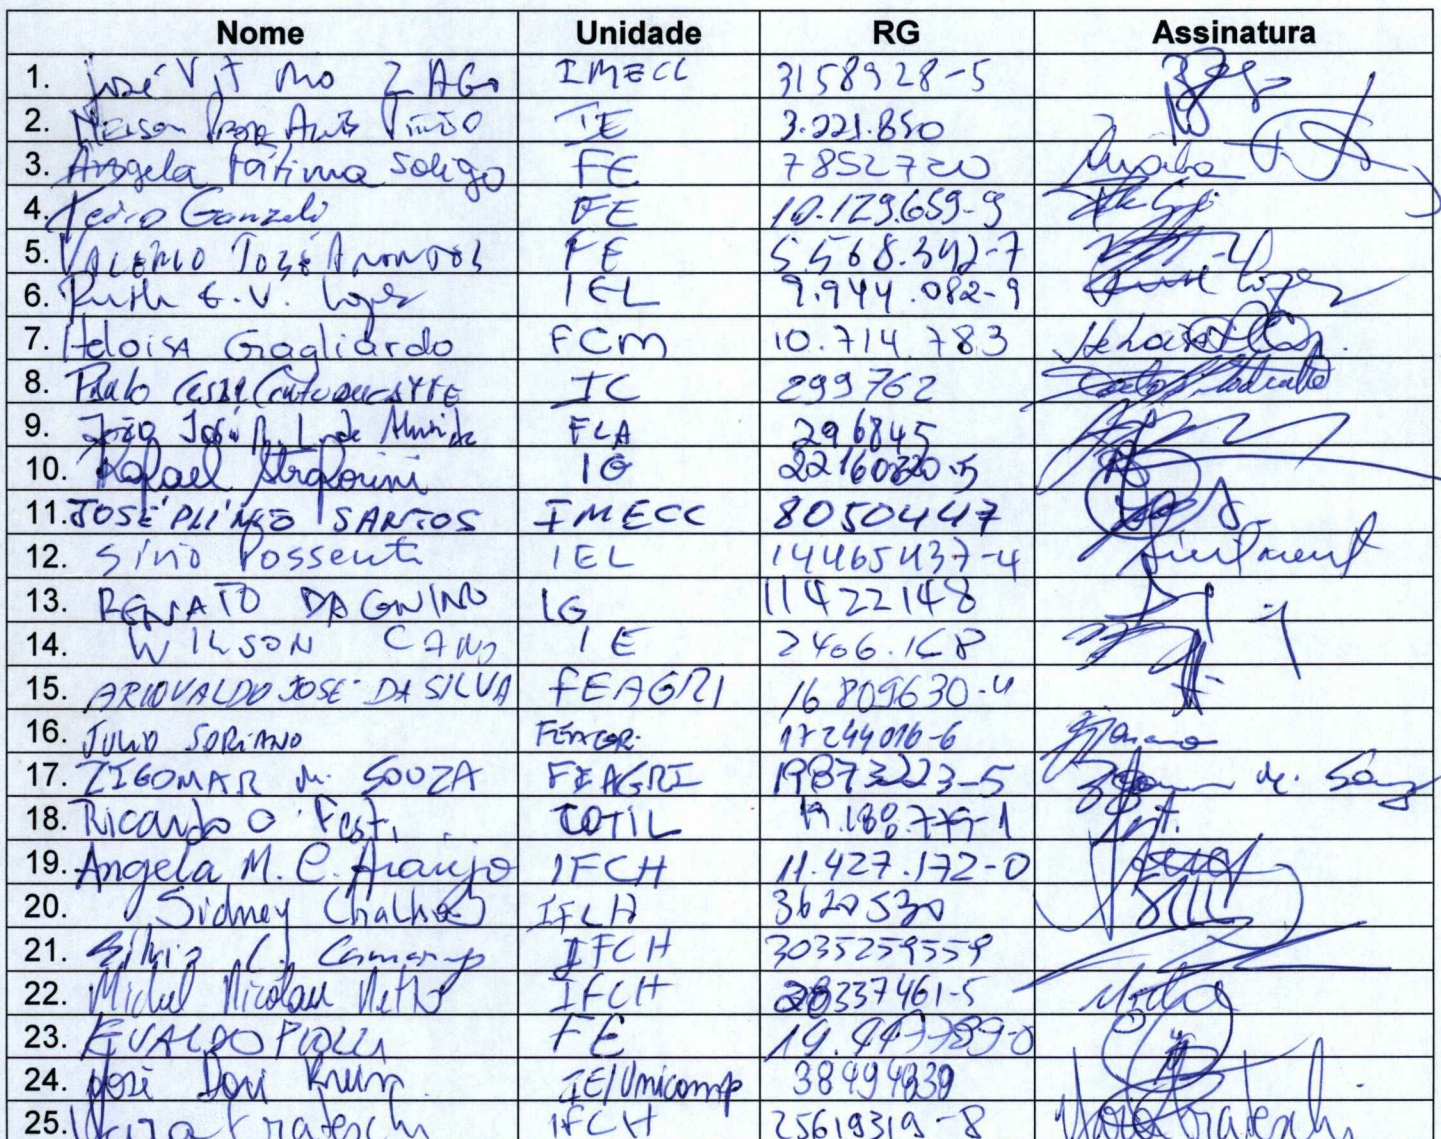 Nome Unidade RG Assinatura
1. José Vit ZAGO IMECC 3158928-5
2. IE 3.221.850
3. Angela Fátima Soligo FE 7852720 Angela
4. Pedro Ganzeli FE 10.129.659-9
5. VALÉRIO JOSÉ ARANTES FE 5.568.342-7
6. Ruth E.V. Lopes IEL 9.944.082-9 Ruth Lopes
7. Heloisa Gagliardo FCM 10.714.783
8. Paulo CESAR CENTODUCATTE IC 299762
9. João José de Almeida FCA 296845
10. Rafael Straforini IG 22160320-5
11. JOSÉ PLÍNIO SANTOS IMECC 8050447
12. Sírio Possenti IEL 14465437-4
13. RENATO DAGNINO IG 11422148
14. WILSON CANO IE 2406.168
15. ARIOVALDO JOSÉ DA SILVA FEAGRI 16809630-4
16. JULIO SORIANO FEAGRI 17244016-6
17. ZIGOMAR M. SOUZA FEAGRI 19873223-5
18. Ricardo O. Festi COTIL
19. Angela M. C. Araujo IFCH 11.427.172-0
20. Sidney Chalhoub IFCH 3620530
21. Silvio C. Camargo IFCH 3035259559
22. Michel Nicolau Netto IFCH 28337461-5
23. EVALDO PIOLLI FE
24. José Dari Krein IE/Unicamp 38494939
25. Yara Frateschi IFCH 25619319-8 Yara Frateschi